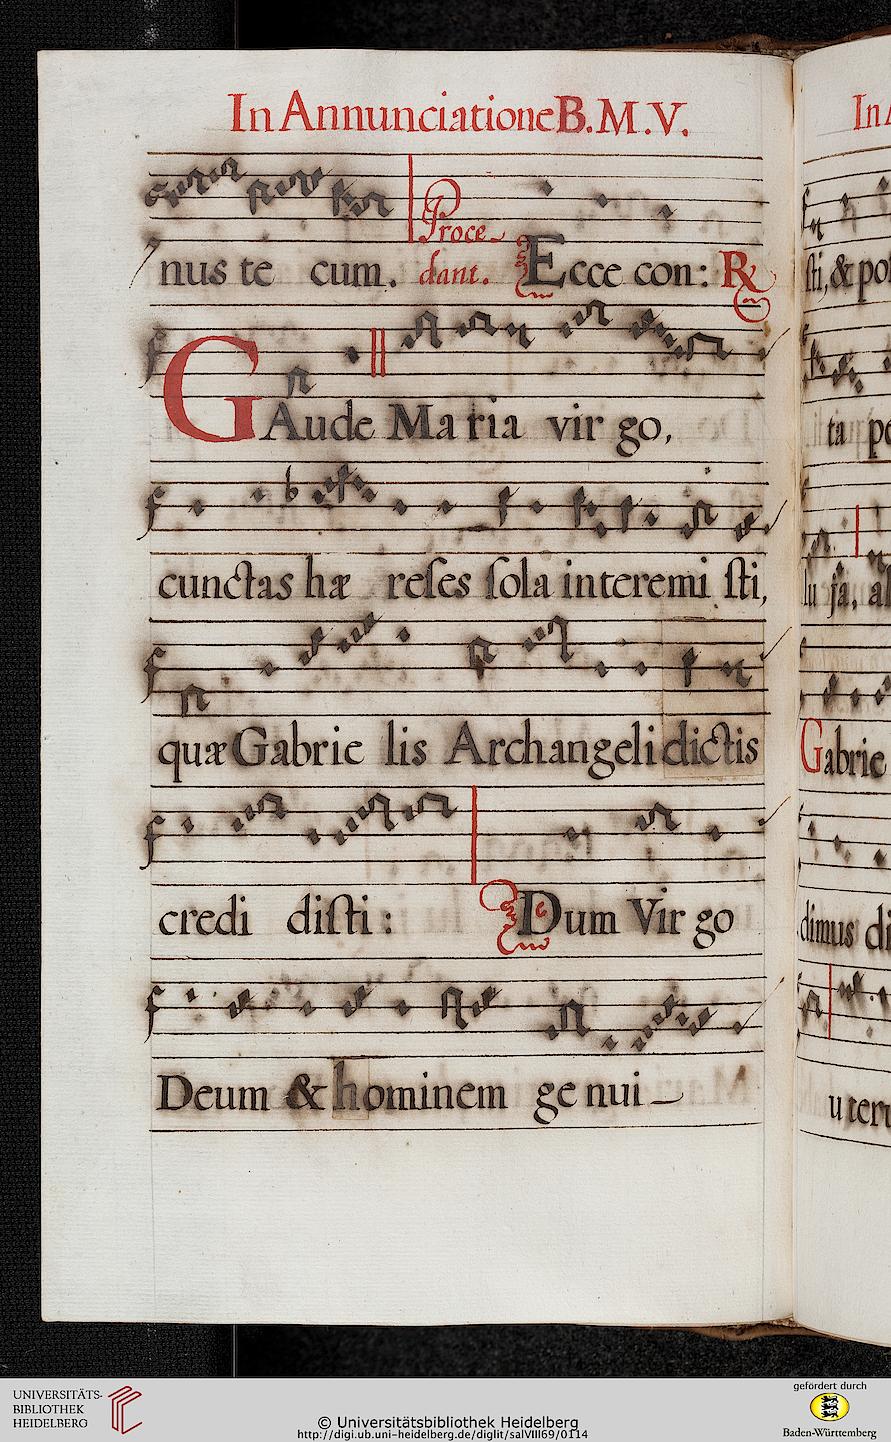 In Annunciatione B. M. V.
Proce-
nus te cum. dant. Ecce con: ℟
GAude Maria vir go,
cunctas hæ reſes ſola interemi ſti,
quæ Gabrie lis Archangeli dictis
credi diſti: Dum Vir go
Deum & hominem ge nui -
In A
ſti, & poſ
ta po
lu ja, aſ
Gabrie
dimus di
u teru
UNIVERSITÄTS-
BIBLIOTHEK
HEIDELBERG
© Universitätsbibliothek Heidelberg
http://digi.ub.uni-heidelberg.de/diglit/salVIII69/0114
gefördert durch
Baden-Württemberg